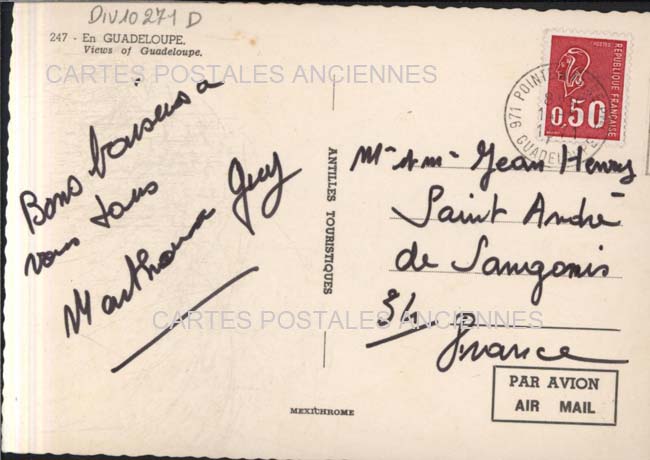 DIV10271 D
247 - En GUADELOUPE.
Views of Guadeloupe.
CARTES POSTALES ANCIENNES
Bons baisers a
vous tous
Guy
ANTILLES TOURISTIQUES
MEXICHROME
POSTES
REPUBLIQUE FRANÇAISE
0,50
971 POINTE
GUADEL
Jean Henry
Saint André
de Sangonis
34.
France
CARTES POSTALES ANCIENNES
PAR AVION
AIR MAIL